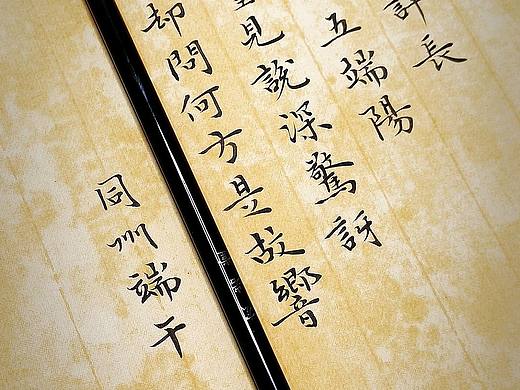 許長
五端陽
見說深驚訝
却問何方是故響
同州端午